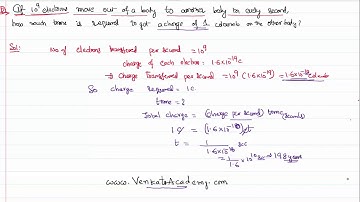 Q. If 10⁹ electrons move out of a body to another body in every second,
how much time is required to get a charge of 1 coloumb on the other body?
Sol: no of electrons transferred per second = 10⁹
charge of each electron = 1.6x10⁻¹⁹c
→ Charge transferred per second = 10⁹ (1.6x10⁻¹⁹) = 1.6x10⁻¹⁰
So charge required = 1c.
time = ?
Total charge = (charge per second) time (seconds)
1c = (1.6x10⁻¹⁰) t
t = 1 / 1.6x10⁻¹⁰ sec
= 1/1.6 x 10¹⁰ sec → 198 years
www.VenkatsAcademy.com